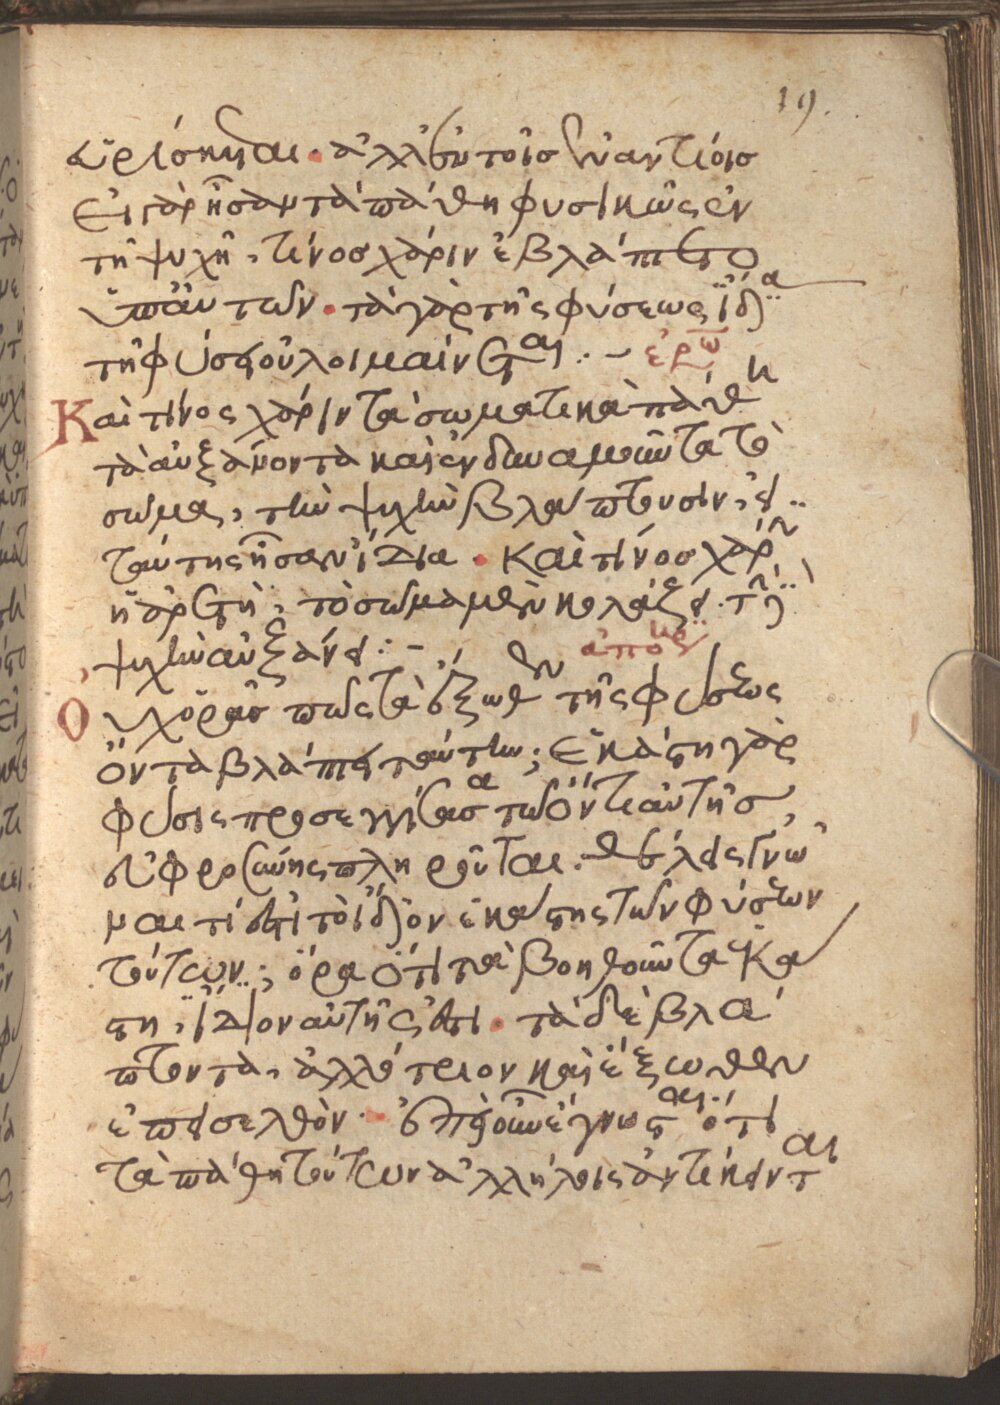 19.
εὑρίσκηται · ἀλλ' ἐν τοῖς ἐναντίοις
Εἰ γὰρ ἦσαν τὰ πάθη φυσικῶς ἐν
τῇ ψυχῇ, τίνος χάριν ἐβλάπτετο
ὑπ' αὐτῶν · τὰ γὰρ τῆς φύσεως ἴδια
τῇ φύσει οὐ λοιμαίνεται :– ἐρω
Καὶ τίνος χάριν τὰ σωματικὰ πάθη
τὰ αὐξάνοντα καὶ ἐνδυναμοῦντα τὸ
σῶμα, τὴν ψυχὴν βλάπτουσιν, εἰ
ταύτης ἦσαν ἴδια · καὶ τίνος χάριν
ἡ ἀρετὴ, τὸ σῶμα μὲν κολάζει · τὴν
ψυχὴν αὐξάνει :– αποκρ
Οὐχ ὁρᾷς πῶς τὰ ἔξωθεν τῆς φύσεως
ὄντα βλάπτει ταύτην ; Ἑκάστη γὰρ
φύσις προσεγγίσασα τῶ ὄντι αὐτῆς
εὐφροσύνης πληροῦται · θέλεις γνῶ
ναι τί ἐστι τὸ ἴδιον ἑκάστης τῶν φύσεων
τούτων ; ὅρα ὅτι τὰ βοηθοῦντα ἑκά
στη, ἴδιον αὐτῆς ἐστι · τὰ δὲ βλά
πτοντα, ἀλλότριον καὶ ἔξωθεν
ἐπεισελθόν · ἐπεὶ οὖν ἔγνωσται ὅτι
τὰ πάθη τούτων ἀλλήλοις ἀντίκεινται